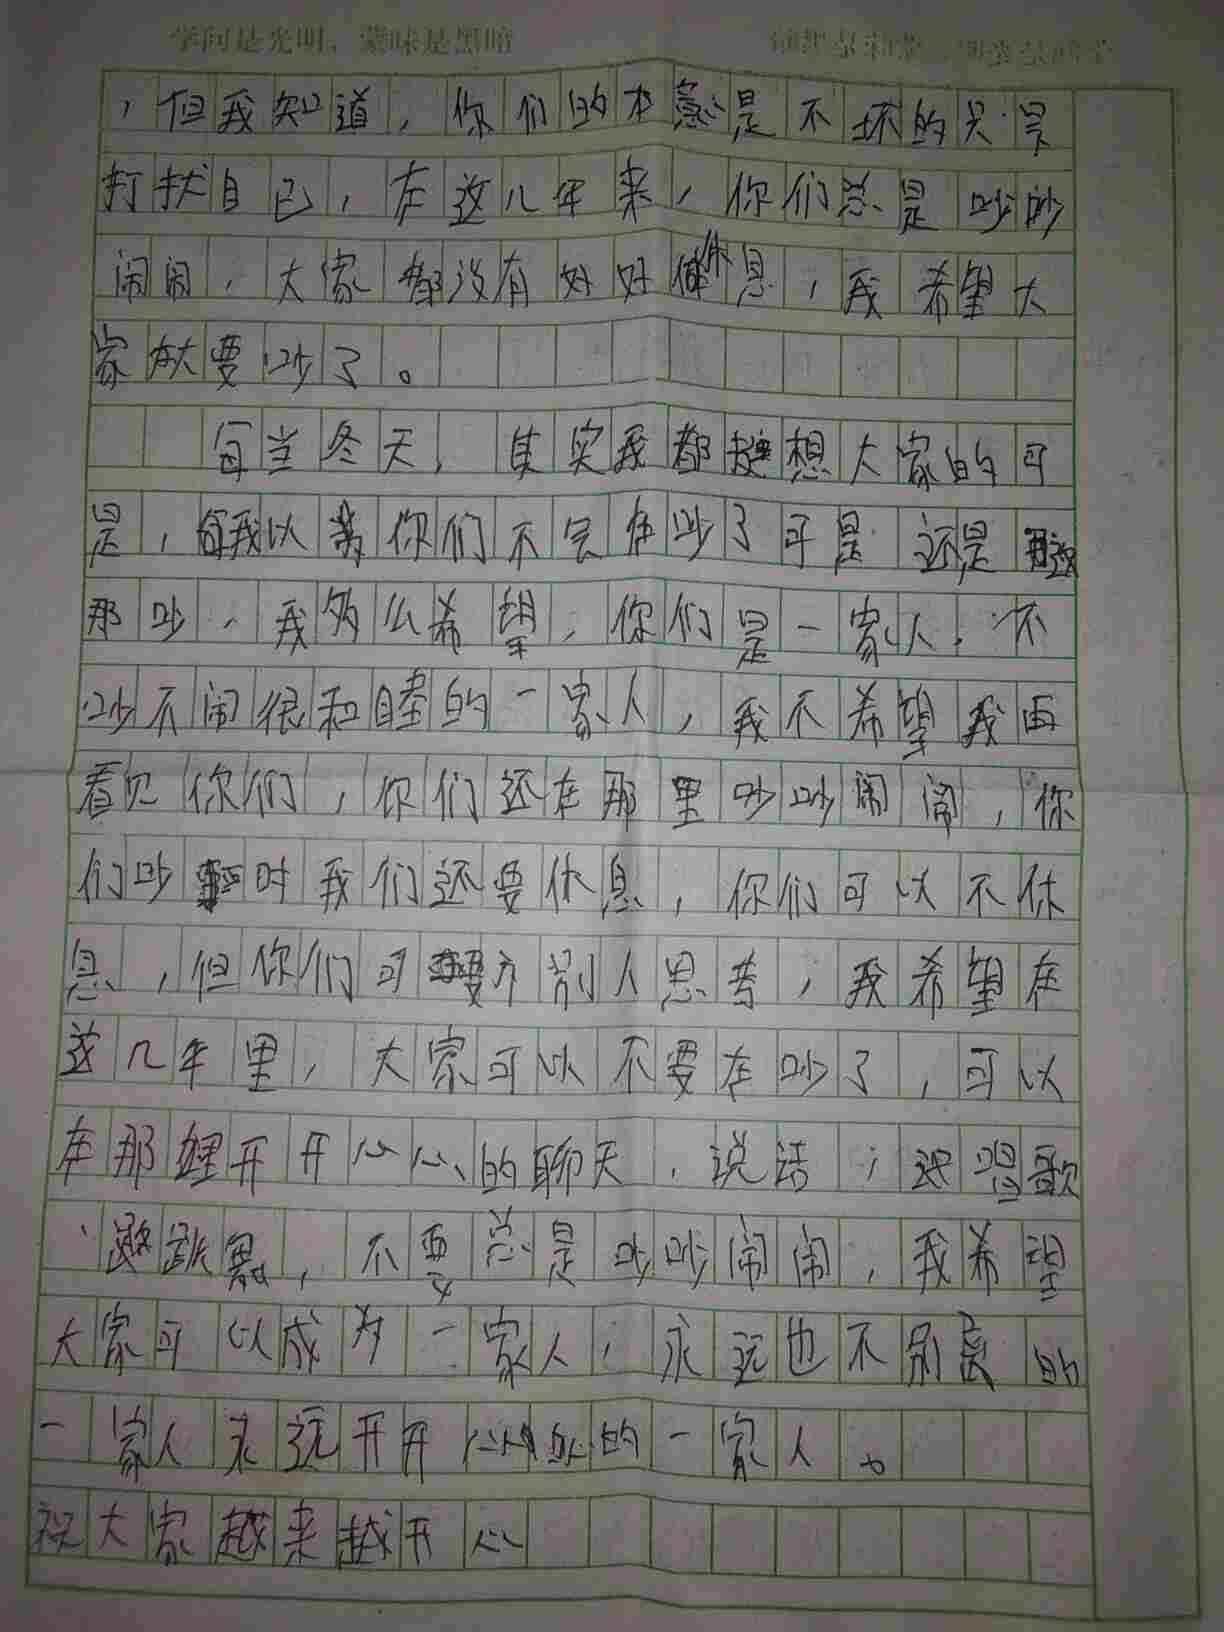 学问是光明，蒙昧是黑暗
，但我知道，你们的本意是不坏的只是
打扰自己，在这几年来，你们总是吵吵
闹闹，大家都没有好好休息，我希望大
家要吵了。
每当冬天，其实我都挺想大家的可
是，每我以为你们不会在吵了可是还是
那吵，我多么希望，你们是一家人，不
吵不闹很和睦的一家人，我不希望我再
看见你们，你们还在那里吵吵闹闹，你
们吵时我们还要休息，你们可以不休
息，但你们可要为别人思考，我希望在
这几年里，大家可以不要在吵了，可以
在那里开开心心的聊天，说话，唱歌
、跳舞，不要总是吵吵闹闹，我希望
大家可以成为一家人，永远也不别离的
一家人永远开开心心的一家人。
祝大家越来越开心